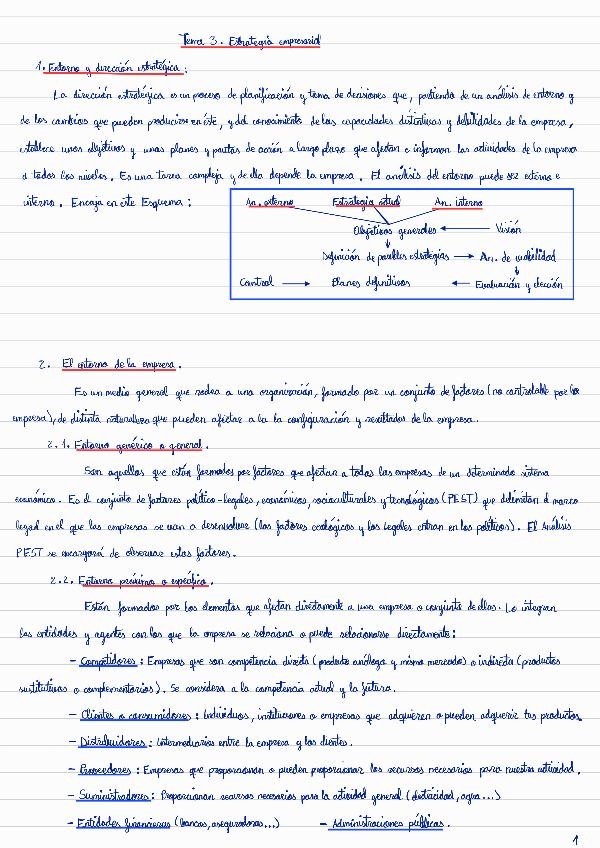 Tema 3. Estrategia empresarial
1. Entorno y dirección estratégica:
La dirección estratégica es un proceso de planificación y toma de decisiones que, partiendo de un análisis de entorno y
de los cambios que pueden producirse en éste, y del conocimiento de las capacidades distintivas y debilidades de la empresa,
establece unos objetivos y unos planes y pautas de acción a largo plazo que afectan e informan las actividades de la empresa
a todos los niveles. Es una tarea compleja y de ella depende la empresa. El análisis del entorno puede ser externo e
interno. Encaja en este Esquema:
An. externo Estrategia actual An. interno
Objetivos generales ← Visión
Definición de posibles estrategias → An. de viabilidad
Control → Planes definitivos ← Evaluación y elección
2. El entorno de la empresa.
Es un medio general que rodea a una organización, formado por un conjunto de factores (no controlable por la
empresa), de distinta naturaleza que pueden afectar a la la configuración y resultados de la empresa.
2.1. Entorno genérico o general.
Son aquellos que están formados por factores que afectan a todas las empresas de un determinado sistema
económico. Es el conjunto de factores político-legales, económicos, socioculturales y tecnológicos (PEST) que delimitan el marco
legal en el que las empresas se van a desenvolver (los factores ecológicos y los legales entran en los políticos). El Análisis
PEST se encargará de observar estos factores.
2.2. Entorno próximo o específico.
Están formados por los elementos que afectan directamente a una empresa o conjunto de ellas. Lo integran
las entidades y agentes con los que la empresa se relaciona o puede relacionarse directamente:
- Competidores: Empresas que son competencia directa (producto análogo y mismo mercado) o indirecta (productos
sustitutivos o complementarios). Se considera a la competencia actual y la futura.
- Clientes o consumidores: Individuos, instituciones o empresas que adquieren o pueden adquirir tus productos.
- Distribuidores: Intermediarios entre la empresa y los clientes.
- Proveedores: Empresas que proporcionan o pueden proporcionar los recursos necesarios para nuestra actividad.
- Suministradores: Proporcionan recursos necesarios para la actividad general (electricidad, agua...)
- Entidades financieras (bancos, aseguradoras...) - Administraciones públicas.
1